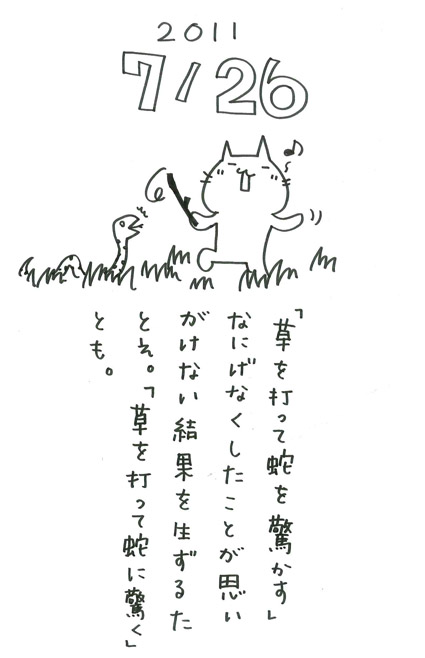 2011
7/26
「草を打って蛇を驚かす」
なにげなくしたことが思い
がけない結果を生ずるた
とえ。「草を打って蛇に驚く」
とも。